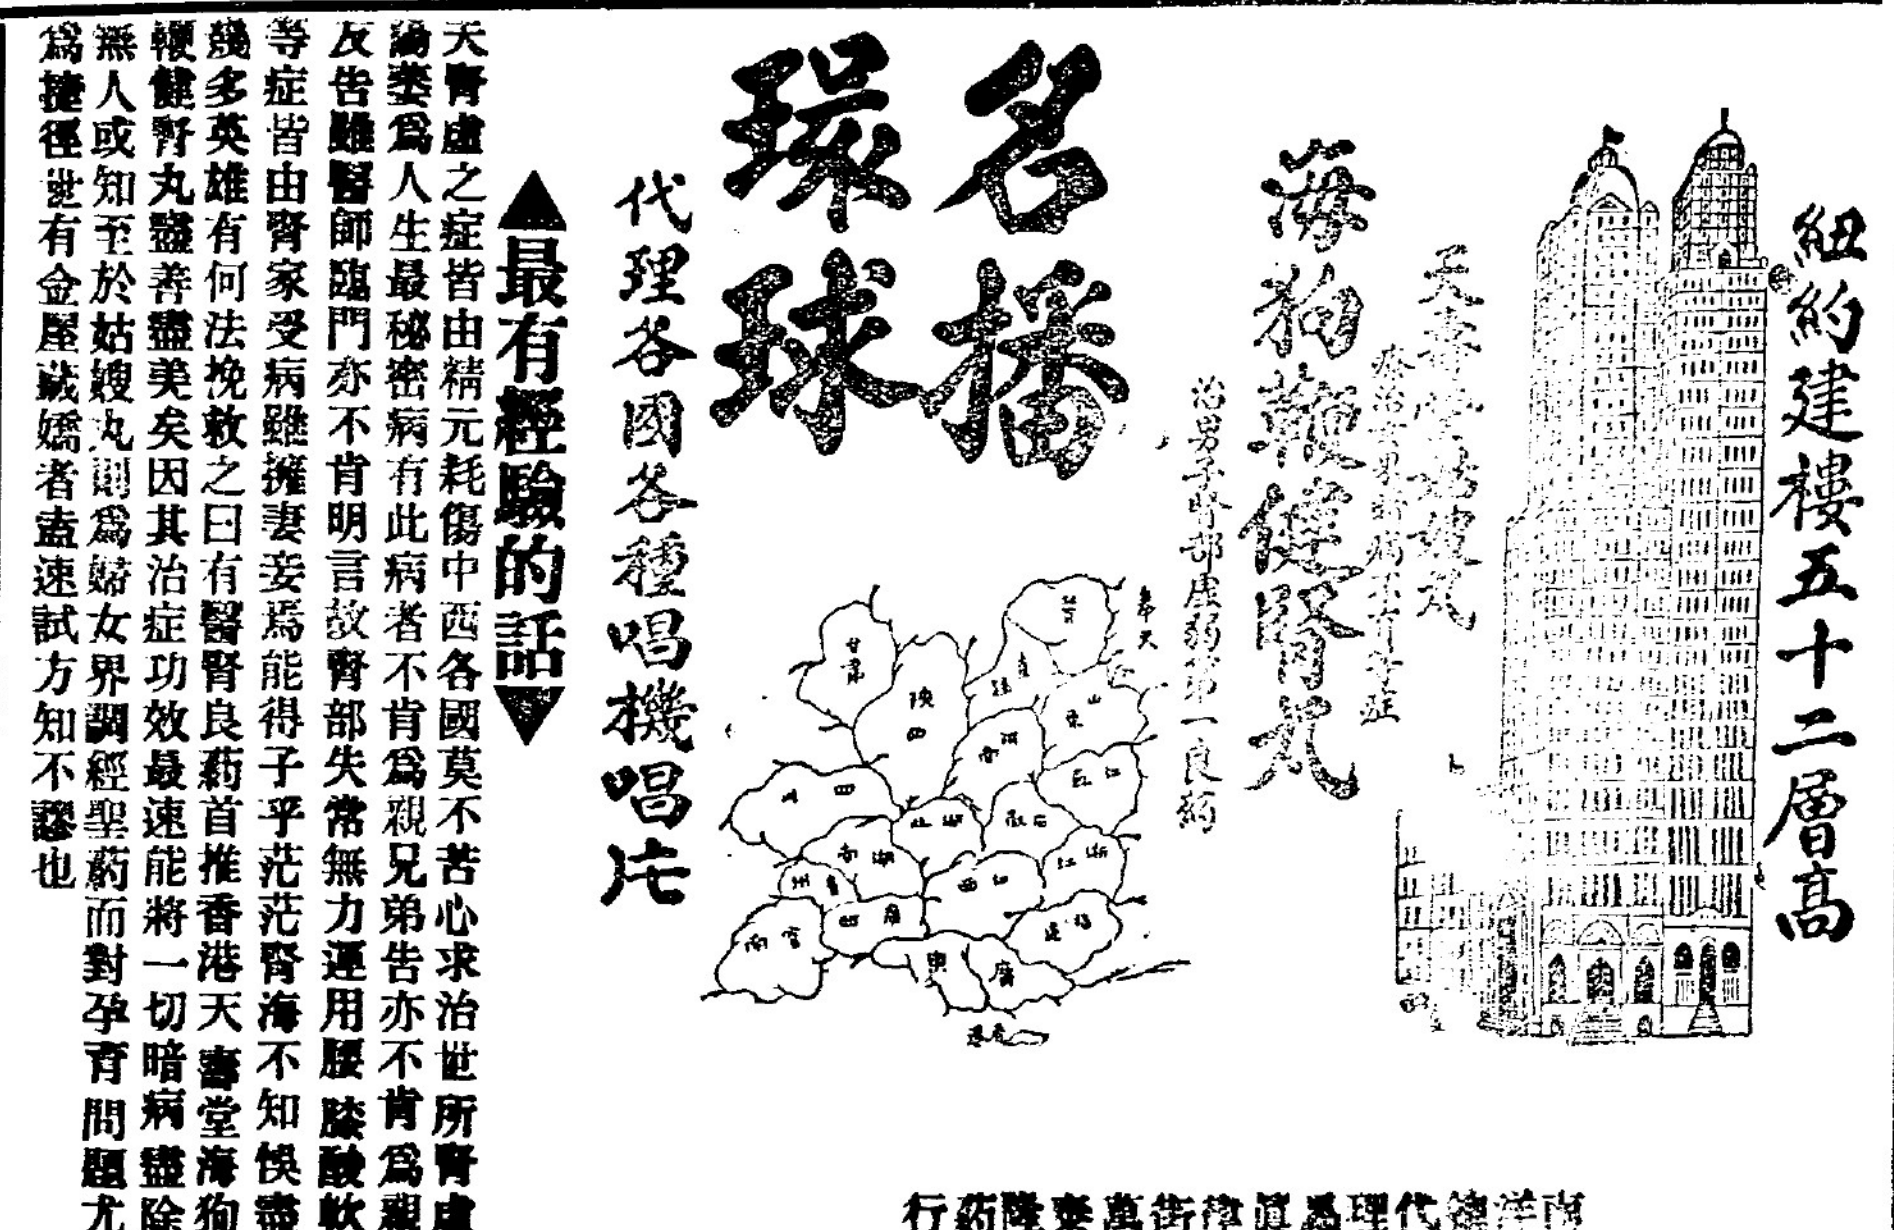 紐約建樓五十二層高
天壽堂姑嫂丸
海狗鞭健腎丸
治男子腎部虛弱第一良葯
名播
環球
奉天
直隸
甘肅
陝西
山東
河南
江
四川
湖北
安
浙江
湖南
江西
貴州
福建
廣西
雲南
廣東
香港
代理各國各種唱機唱片
▲最有經驗的話▼
夫腎虛之症皆由精元耗傷中西各國莫不苦心求治世所腎虛
陽萎爲人生最秘密病有此病者不肯爲親兄弟告亦不肯爲親
友告雖醫師臨門亦不肯明言故腎部失常無力運用腰膝酸軟
等症皆由腎家受病雖擁妻妾焉能得子乎茫茫腎海不知悞盡
幾多英雄有何法挽救之曰有醫腎良葯首推香港天壽堂海狗
鞭健腎丸盡善盡美矣因其治症功效最速能將一切暗病盡除
無人或知至於姑嫂丸則爲婦女界調經聖葯而對孕育問題尤
爲捷徑世有金屋藏嬌者盍速試方知不謬也